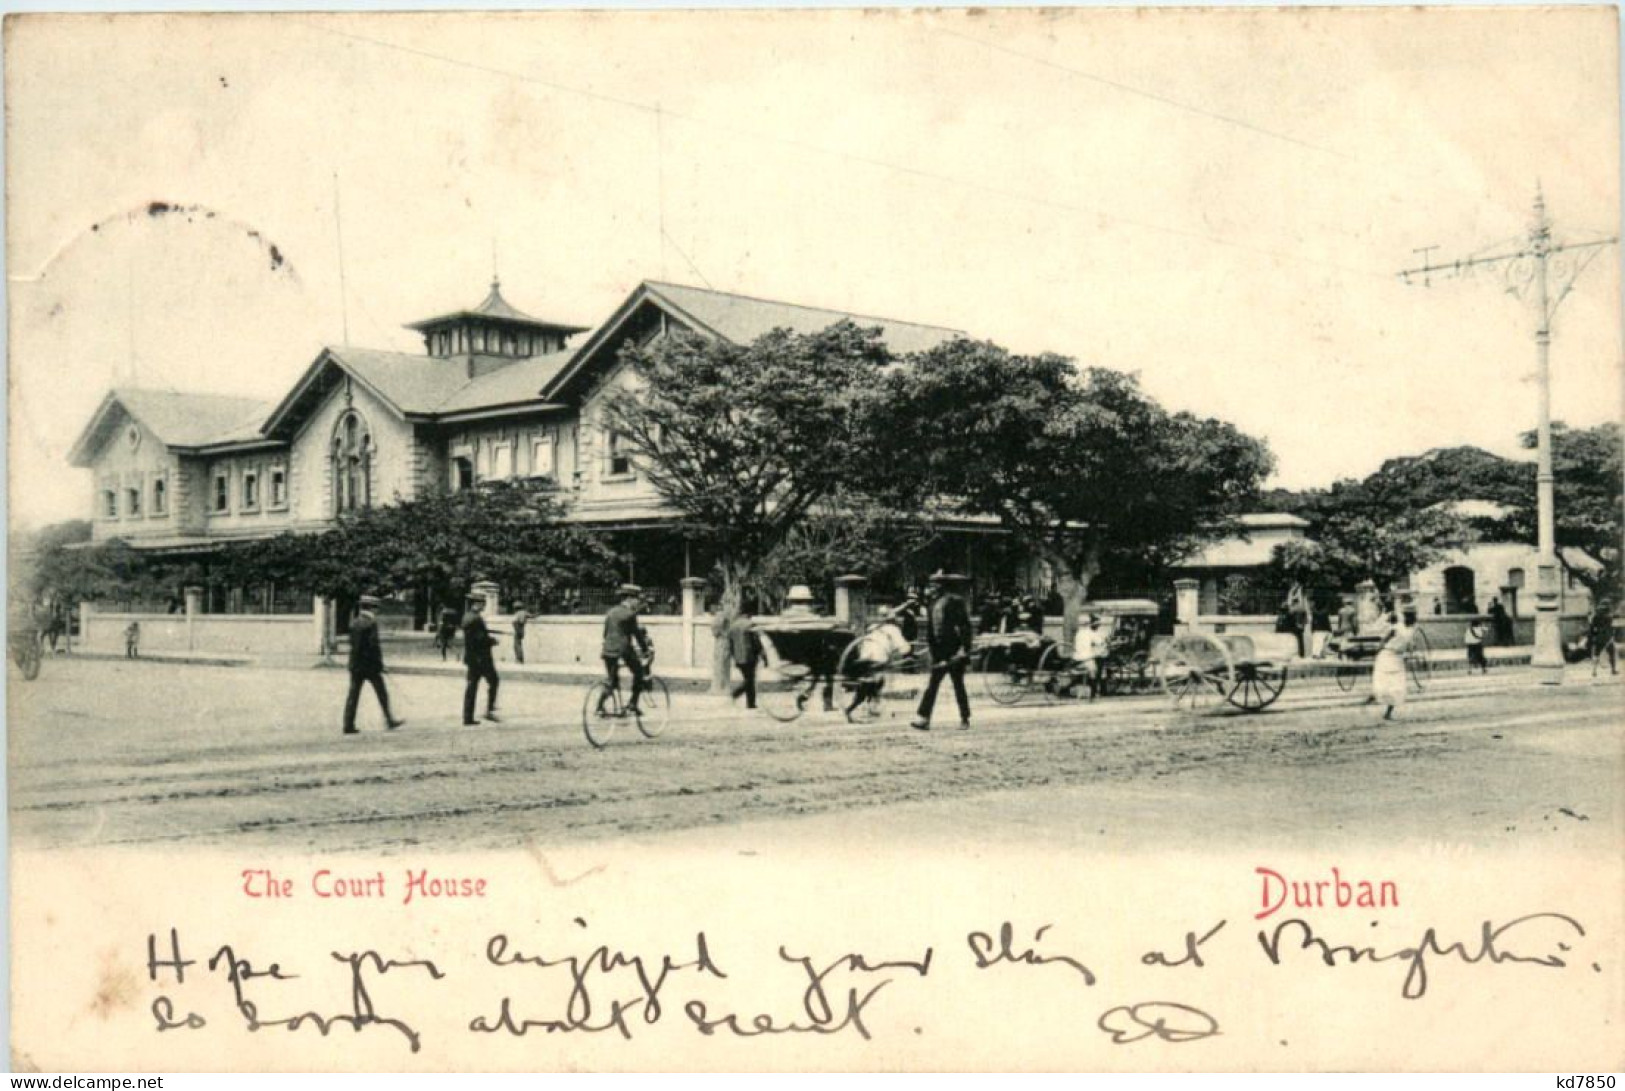 The Court House
Durban
Hope you enjoyed your stay at Brighton.
So sorry about scent. ED.
www.delcampe.net
kd7850